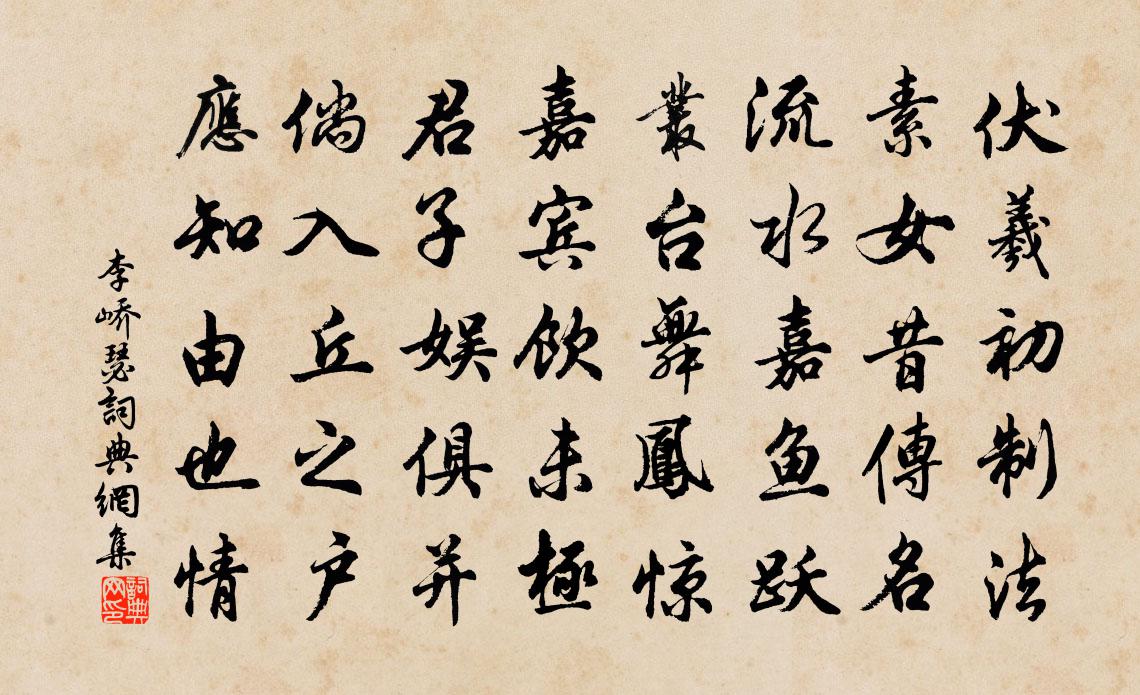 伏羲初制法
素女昔傳名
流水嘉鱼跃
叢台舞鳳惊
嘉宾飲未極
君子娱俱并
倘入丘之户
應知由也情
李嶠瑟詞典網集
詞典网印